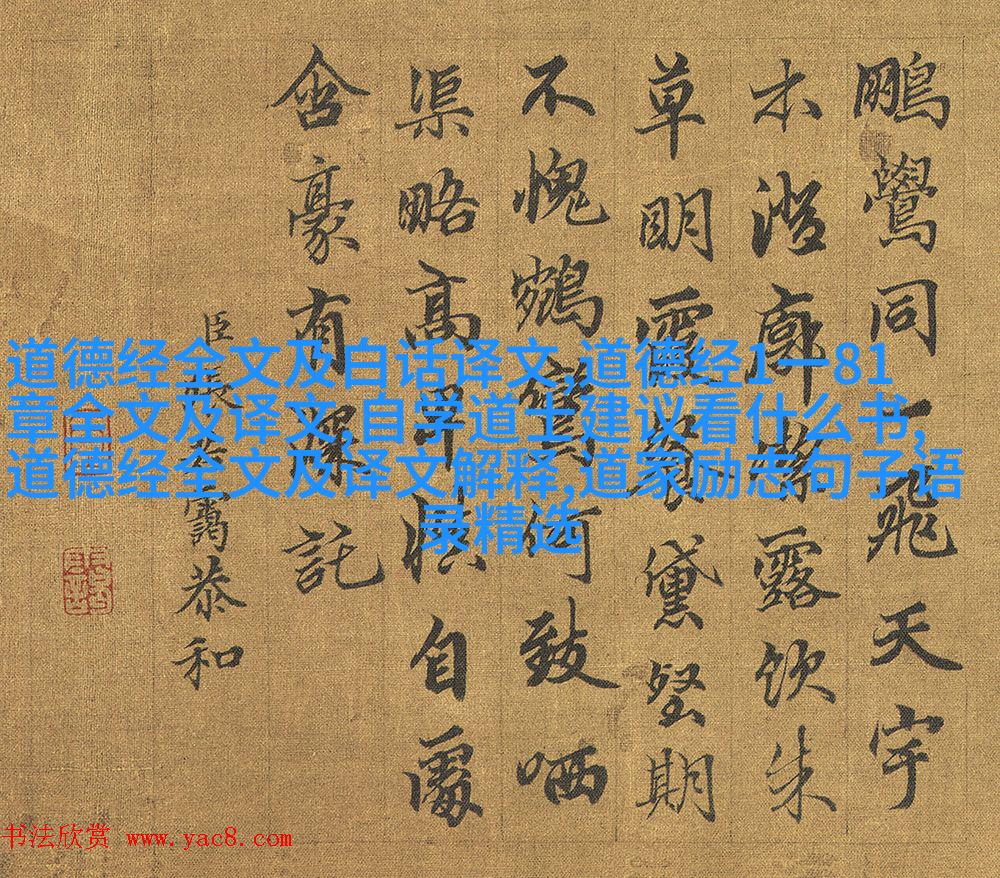 鵬鷽同一飛天宇
木澄廓露飲朱
草明霞餐黛堅期
不愧鶴鸞何致哂
渠略高卑慎自處
含豪有深託
臣張若靄恭和
道德经全文及白话译文,道德经1一81
章全文及译文,自学道士建议看什么书,
道德经全文及译文解释,道家励志句子语
录精选
书法欣赏 www.yac8.com